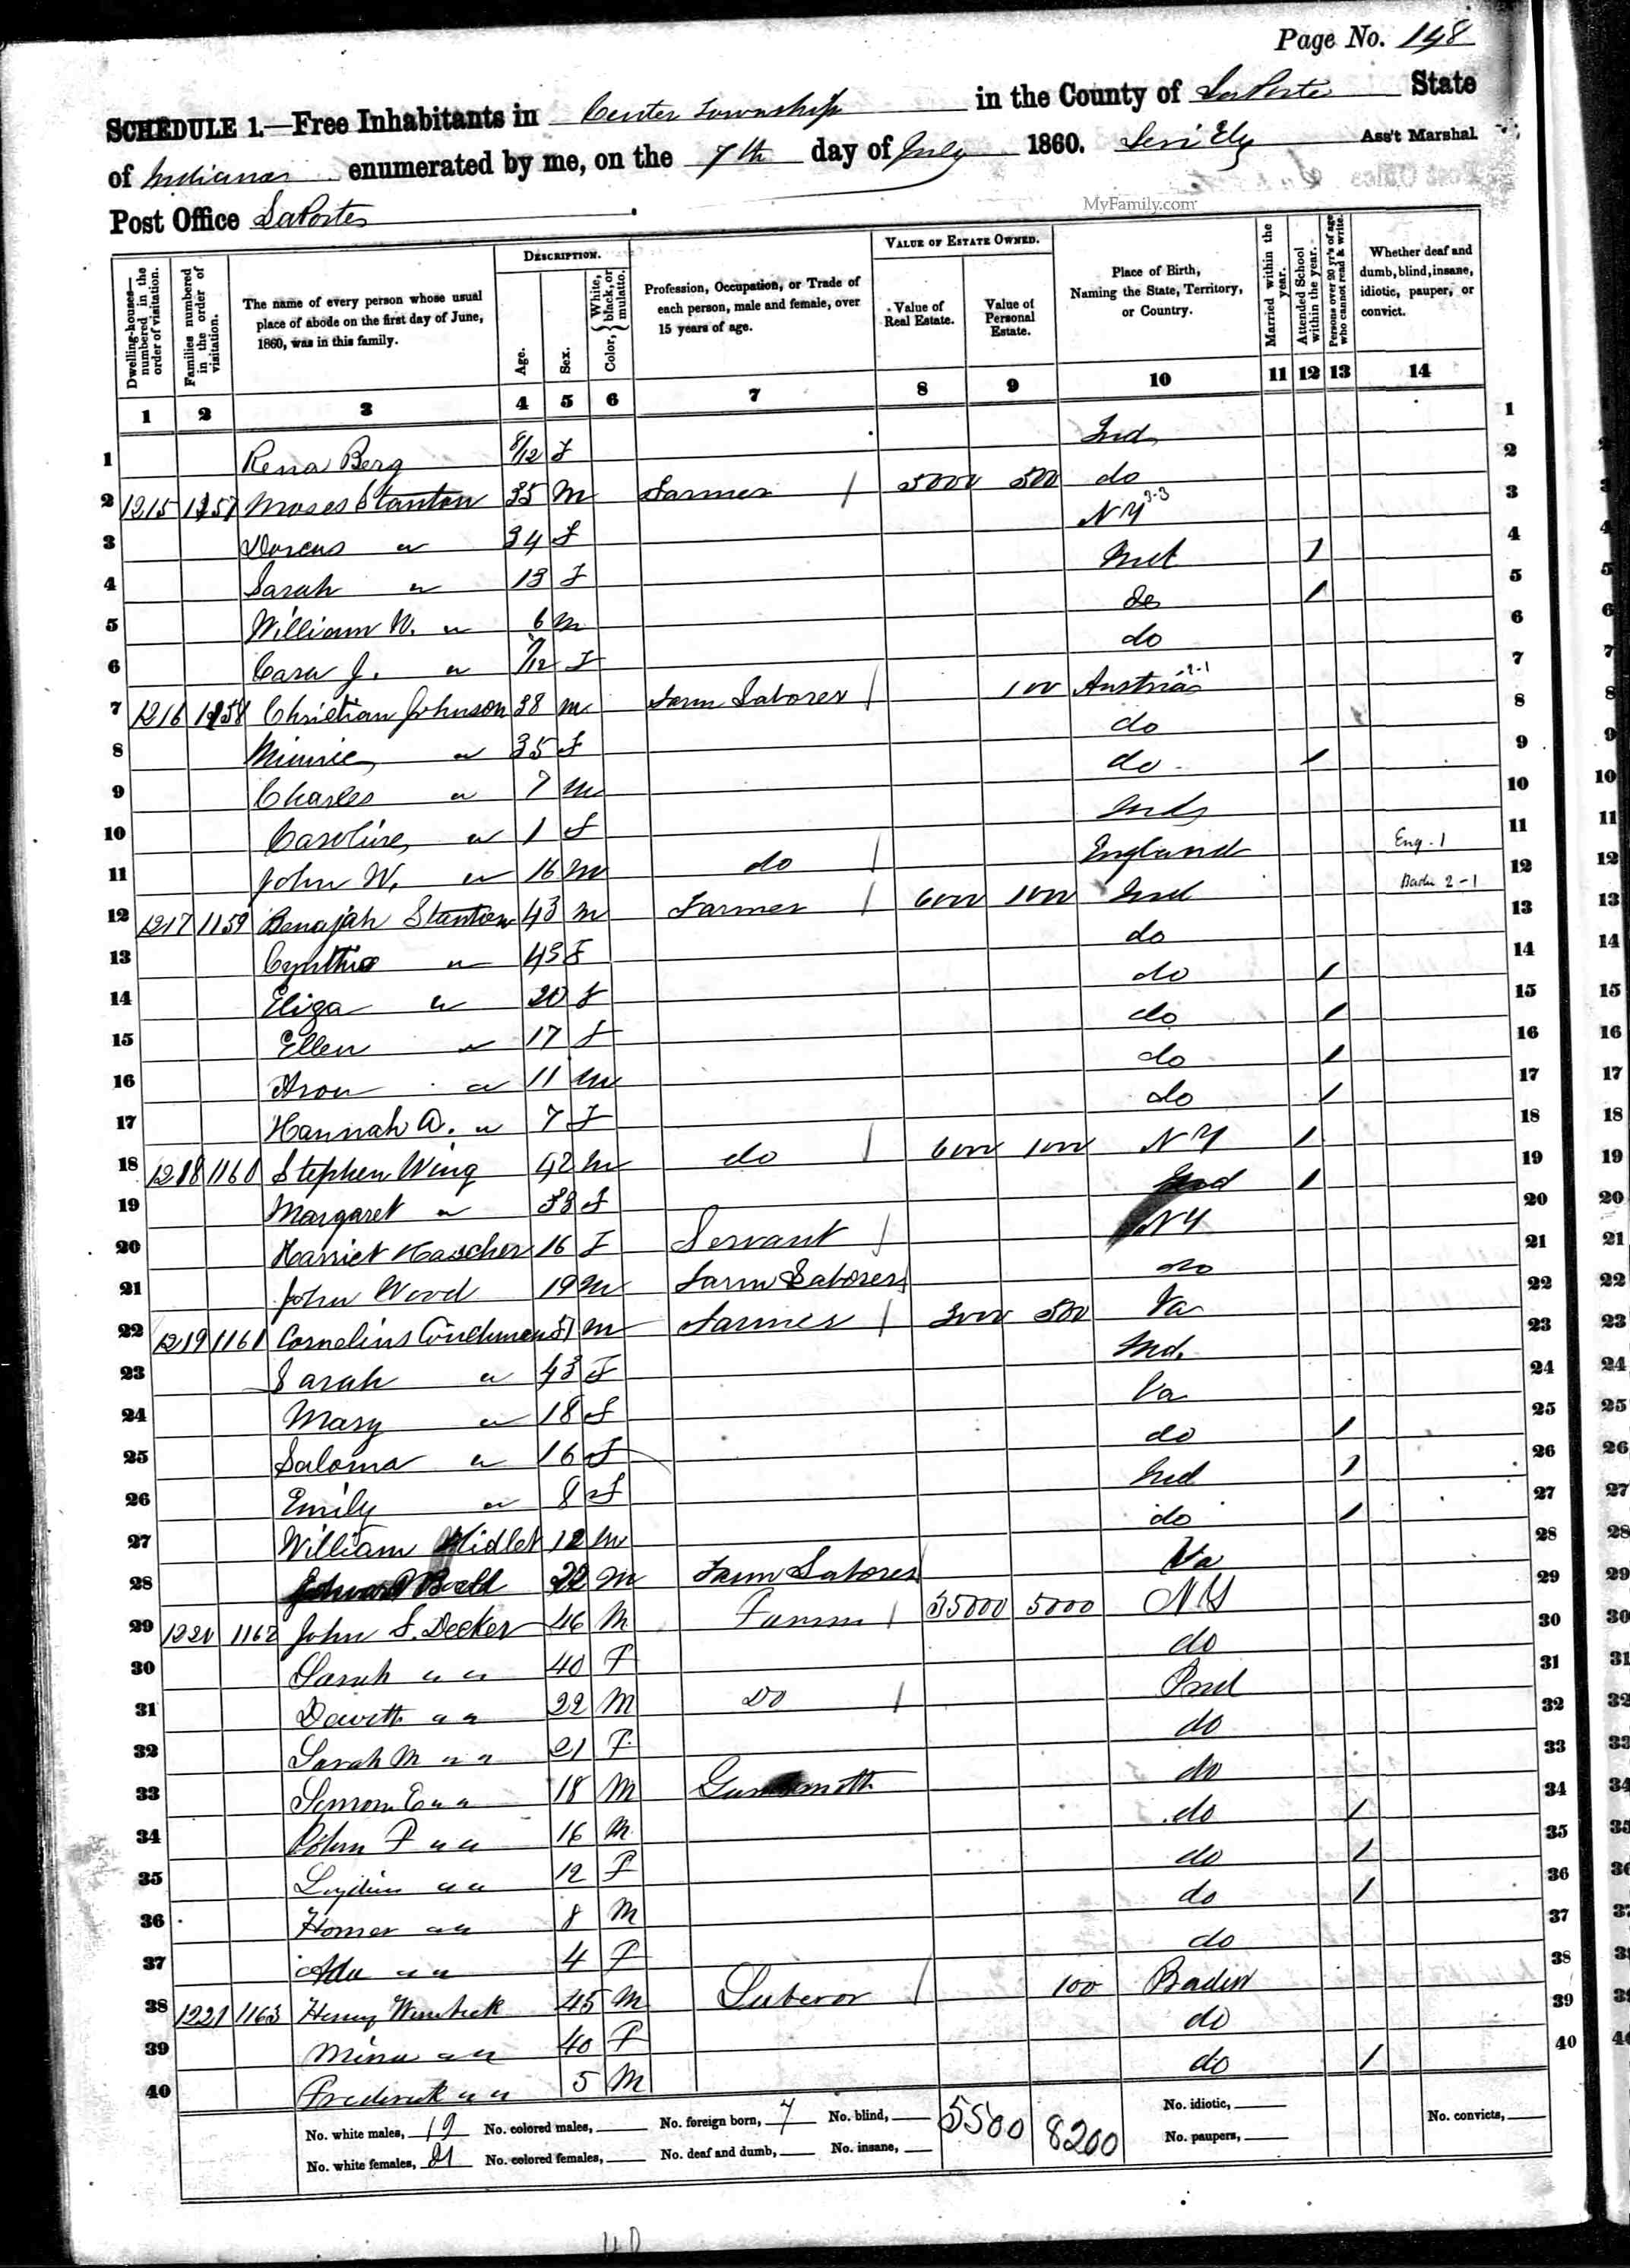 Page No. 148
SCHEDULE 1.—Free Inhabitants in Center Township in the County of LaPorte State
of Indiana enumerated by me, on the 7th day of July 1860. Levi Ely Ass't Marshal
Post Office LaPorte
MyFamily.com
Dwelling-houses—numbered in the order of visitation.
Families numbered in the order of visitation.
The name of every person whose usual place of abode on the first day of June, 1860, was in this family.
DESCRIPTION.
Age.
Sex.
Color, White, black, or mulatto.
Profession, Occupation, or Trade of each person, male and female, over 15 years of age.
VALUE OF ESTATE OWNED.
Value of Real Estate.
Value of Personal Estate.
Place of Birth, Naming the State, Territory, or Country.
Married within the year.
Attended School within the year.
Persons over 20 yr's of age who cannot read & write.
Whether deaf and dumb, blind, insane, idiotic, pauper, or convict.
1 2 3 4 5 6 7 8 9 10 11 12 13 14
1 Rena Berg 8/12 F Ind 1
2 1215 1157 Moses Stanton 35 M Farmer / 5000 500 do 2
3 Dorcus " 34 F NY 3-3 3
4 Sarah " 13 F Ind / 4
5 William W. " 6 M do / 5
6 F do 6
7 1216 1158 Christian Johnson 38 M Farm Laborer / 100 Austria 2-1 7
8 Minnie " 35 F do 8
9 Charles " 7 M do / 9
10 Caroline " 1 F Ind 10
11 John W. " 16 M do / England Eng. 1 11
12 1217 1159 Benajah Stanton 43 M Farmer / 6000 1000 Ind Baden 2-1 12
13 Cynthia " 43 F do 13
14 Eliza " 20 F do / 14
15 Ellen " 17 F do / 15
16 Aron " 11 M do / 16
17 Hannah A. " 7 F do / 17
18 1218 1160 Stephen Wing 42 M do / 6000 1000 NY / 18
19 Margaret " 33 F Ind / 19
20 Harriet 16 F Servant / NY 20
21 John Wood 19 M Farm Laborer / do 21
22 1219 1161 Cornelius 51 M Farmer / 3000 500 Va 22
23 Sarah " 43 F Ind. 23
24 Mary " 18 F Va 24
25 Saloma " 16 F do / 25
26 Emily " 8 F Ind / 26
27 William 12 M do / 27
28 22 M Farm Laborer Va 28
29 1220 1162 John S. Decker 46 M Farmer / 35000 5000 NY 29
30 Sarah " " 40 F do 30
31 Dewitt " " 22 M Do / Ind 31
32 Sarah M " " 21 F do 32
33 " " 18 M Gunsmith do 33
34 John F " " 16 M do / 34
35 Lydia " " 12 F do / 35
36 Homer " " 8 M do / 36
37 Ada " " 4 F do 37
38 1221 1163 Henry 45 M Laberor / 100 Baden 38
39 Mina " " 40 F do 39
40 Frederick " " 5 M do / 40
No. white males, 19 No. colored males, No. foreign born, 7 No. blind, 5500 8200 No. idiotic, No. convicts,
No. white females, 21 No. colored females, No. deaf and dumb, No. insane, No. paupers,